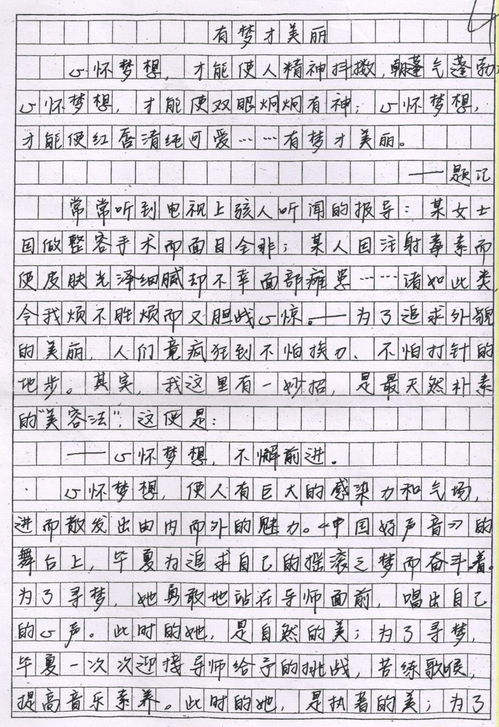 有梦才美丽
心怀梦想，才能使人精神抖擞，朝气蓬勃
心怀梦想，才能使双眼炯炯有神；心怀梦想，
才能使红唇清纯可爱……有梦才美丽。
——题记
常常听到电视上骇人听闻的报导：某女士
因做整容手术而面目全非；某人因注射毒素而
使皮肤光泽细腻却不幸面部瘫患……诸如此类
令我烦不胜烦而又胆战心惊。——为了追求外貌
的美丽，人们竟疯狂到不怕挨刀、不怕打针的
地步。其实，我这里有一妙招，是最天然朴素
的“美容法”，这便是：
——心怀梦想，不懈前进。
心怀梦想，使人有巨大的感染力和气场，
进而散发出由内而外的魅力。《中国好声音》的
舞台上，毕夏为追求自己的摇滚之梦而奋斗着。
为了寻梦，她勇敢地站在导师面前，唱出自己
的心声。此时的她，是自然的美；为了寻梦，
毕夏一次次迎接导师给予的挑战，苦练歌喉，
提高音乐素养。此时的她，是执着的美；为了